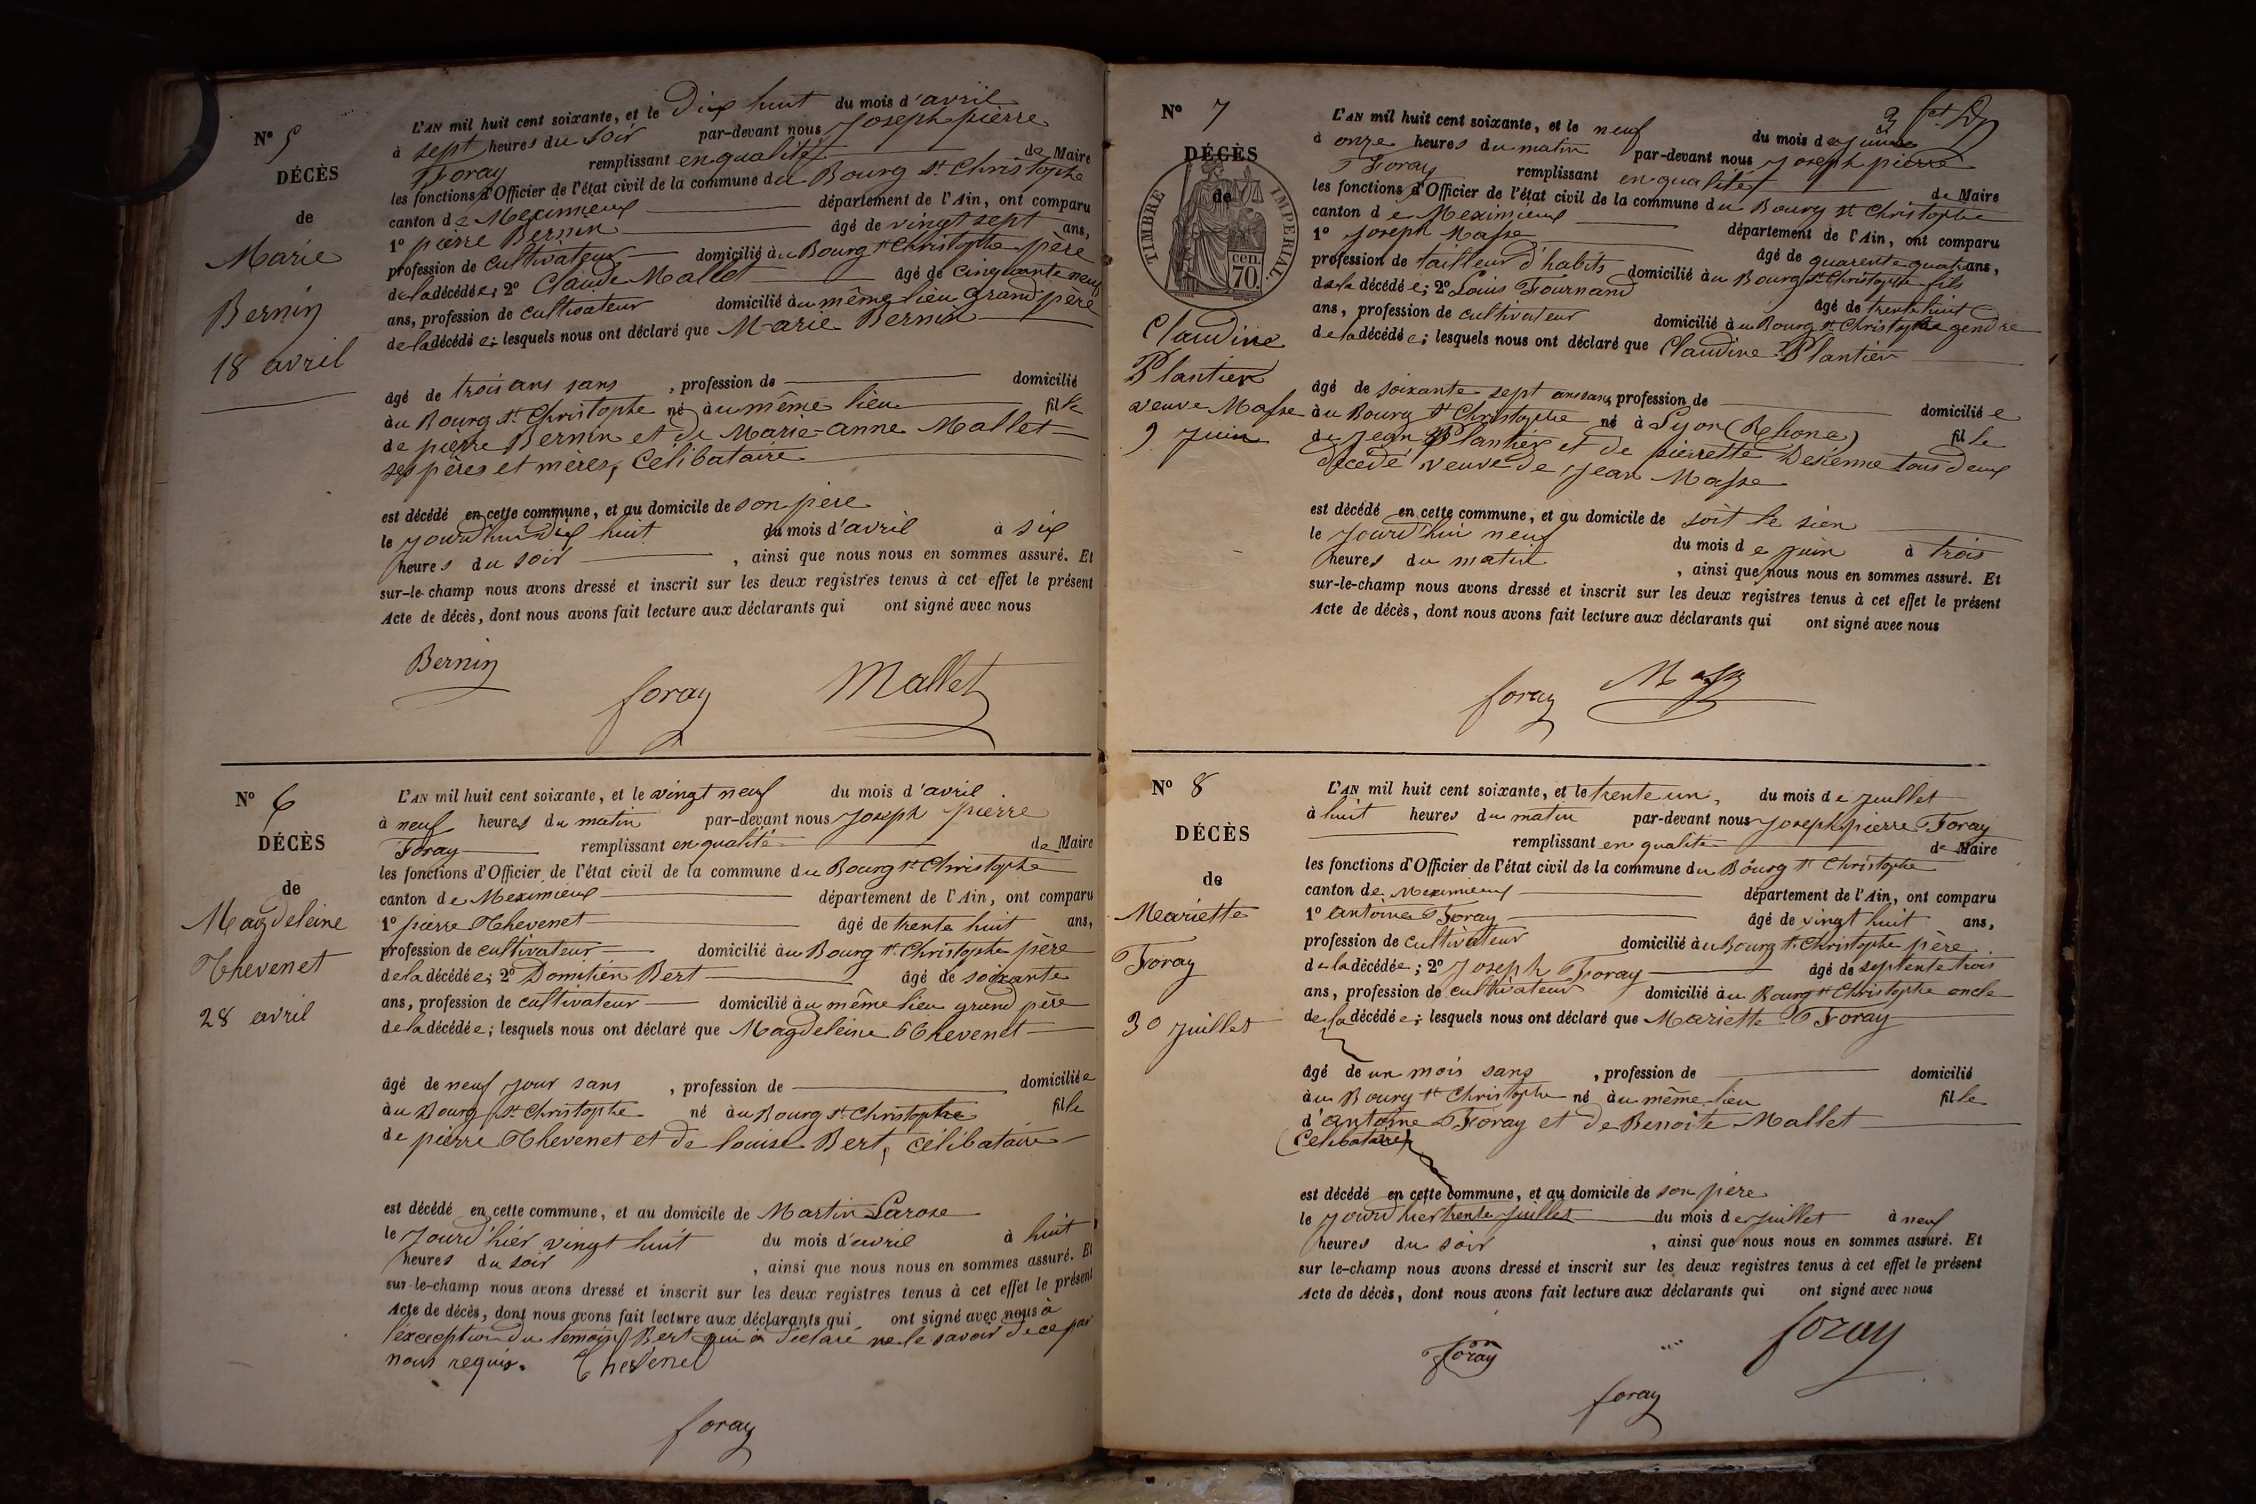 N° 5
DÉCÈS
de
Marie
Bernin
18 avril
L'AN mil huit cent soixante, et le dix huit du mois d'avril
à sept heures du soir par-devant nous Joseph pierre
Foray remplissant en qualité de Maire
les fonctions d'Officier de l'état civil de la commune du Bourg St Christophe
canton de Meximieux département de l'Ain, ont comparu
1° pierre Bernin âgé de vingt sept ans,
profession de cultivateur domicilié à u Bourg St Christophe père
de la décédée; 2° Claude Mallet âgé de cinquante neuf
ans, profession de cultivateur domicilié à u même lieu grand père
de la décédée; lesquels nous ont déclaré que Marie Bernin
âgé de trois ans sans , profession de domicilié
à u Bourg St Christophe né à u même lieu fille
de pierre Bernin et de Marie-anne Mallet
ses pères et mères, Célibataire
est décédé en cette commune, et au domicile de son père
le jourd'hui dix huit du mois d'avril à six
heures du soir , ainsi que nous nous en sommes assuré. Et
sur-le-champ nous avons dressé et inscrit sur les deux registres tenus à cet effet le présent
Acte de décès, dont nous avons fait lecture aux déclarants qui ont signé avec nous
Bernin foray Mallet
N° 6
DÉCÈS
de
Magdeleine
Thevenet
28 avril
L'AN mil huit cent soixante, et le vingt neuf du mois d'avril
à neuf heures du matin par-devant nous Joseph pierre
Foray remplissant en qualité de Maire
les fonctions d'Officier de l'état civil de la commune du Bourg St Christophe
canton de Meximieux département de l'Ain, ont comparu
1° pierre Thevenet âgé de trente huit ans,
profession de cultivateur domicilié à u Bourg St Christophe père
de la décédée; 2° Domitien Bert âgé de soixante
ans, profession de cultivateur domicilié à u même lieu grand père
de la décédée; lesquels nous ont déclaré que Magdeleine Thevenet
âgé de neuf jour sans , profession de domiciliée
à u Bourg St Christophe né à u Bourg St Christophe fille
de pierre Thevenet et de louise Bert, célibataire
est décédé en cette commune, et au domicile de Martin Larose
le jourd'hier vingt huit du mois d'avril à huit
heures du soir , ainsi que nous nous en sommes assuré. Et
sur-le-champ nous avons dressé et inscrit sur les deux registres tenus à cet effet le présent
Acte de décès, dont nous avons fait lecture aux déclarants qui ont signé avec nous à
l'exception du temoins Bert qui a déclaré ne le savoir de ce par
nous requis. Thevenet
foray
N° 7
DÉCÈS
de
TIMBRE IMPERIAL
70 cen.
Claudine
Plantier
veuve Masse
9 Juin
L'AN mil huit cent soixante, et le neuf du mois de juin
à onze heures du matin par-devant nous Joseph pierre
Foray remplissant en qualité de Maire
les fonctions d'Officier de l'état civil de la commune du Bourg St Christophe
canton de Meximieux département de l'Ain, ont comparu
1° Joseph Masse âgé de quarente quatre ans,
profession de tailleur d'habits domicilié à u Bourg St Christophe fils
de la décédée; 2° Louis Fournand âgé de trente huit
ans, profession de cultivateur domicilié à u Bourg St Christophe gendre
de la décédée; lesquels nous ont déclaré que Claudine Plantier
âgé de soixante sept ans sans profession de domiciliée
à u Bourg St Christophe né à Lyon (Rhone) fille
de Jean Plantier et de pierrette tous deux
décédé veuve de Jean Masse
est décédé en cette commune, et au domicile de soit le sien
le jourd'hui neuf du mois de juin à trois
heures du matin , ainsi que nous nous en sommes assuré. Et
sur-le-champ nous avons dressé et inscrit sur les deux registres tenus à cet effet le présent
Acte de décès, dont nous avons fait lecture aux déclarants qui ont signé avec nous
foray Masse
N° 8
DÉCÈS
de
Mariette
Foray
30 juillet
L'AN mil huit cent soixante, et le trente un, du mois de juillet
à huit heures du matin par-devant nous Joseph pierre Foray
remplissant en qualité de Maire
les fonctions d'Officier de l'état civil de la commune du Bourg St Christophe
canton de Meximieux département de l'Ain, ont comparu
1° antoine Foray âgé de vingt huit ans,
profession de cultivateur domicilié à u Bourg St Christophe père
de la décédée; 2° Joseph Foray âgé de septente trois
ans, profession de cultivateur domicilié à u Bourg St Christophe oncle
de la décédée; lesquels nous ont déclaré que Mariette Foray
âgé de un mois sans , profession de domicilié
à u Bourg St Christophe né à u même lieu fille
d'antoine Foray et de Benoite Mallet
Célibataire
est décédé en cette commune, et au domicile de son père
le jourd'hier trente juillet du mois de juillet à neuf
heures du soir , ainsi que nous nous en sommes assuré. Et
sur le-champ nous avons dressé et inscrit sur les deux registres tenus à cet effet le présent
Acte de décès, dont nous avons fait lecture aux déclarants qui ont signé avec nous
foray foray
foray